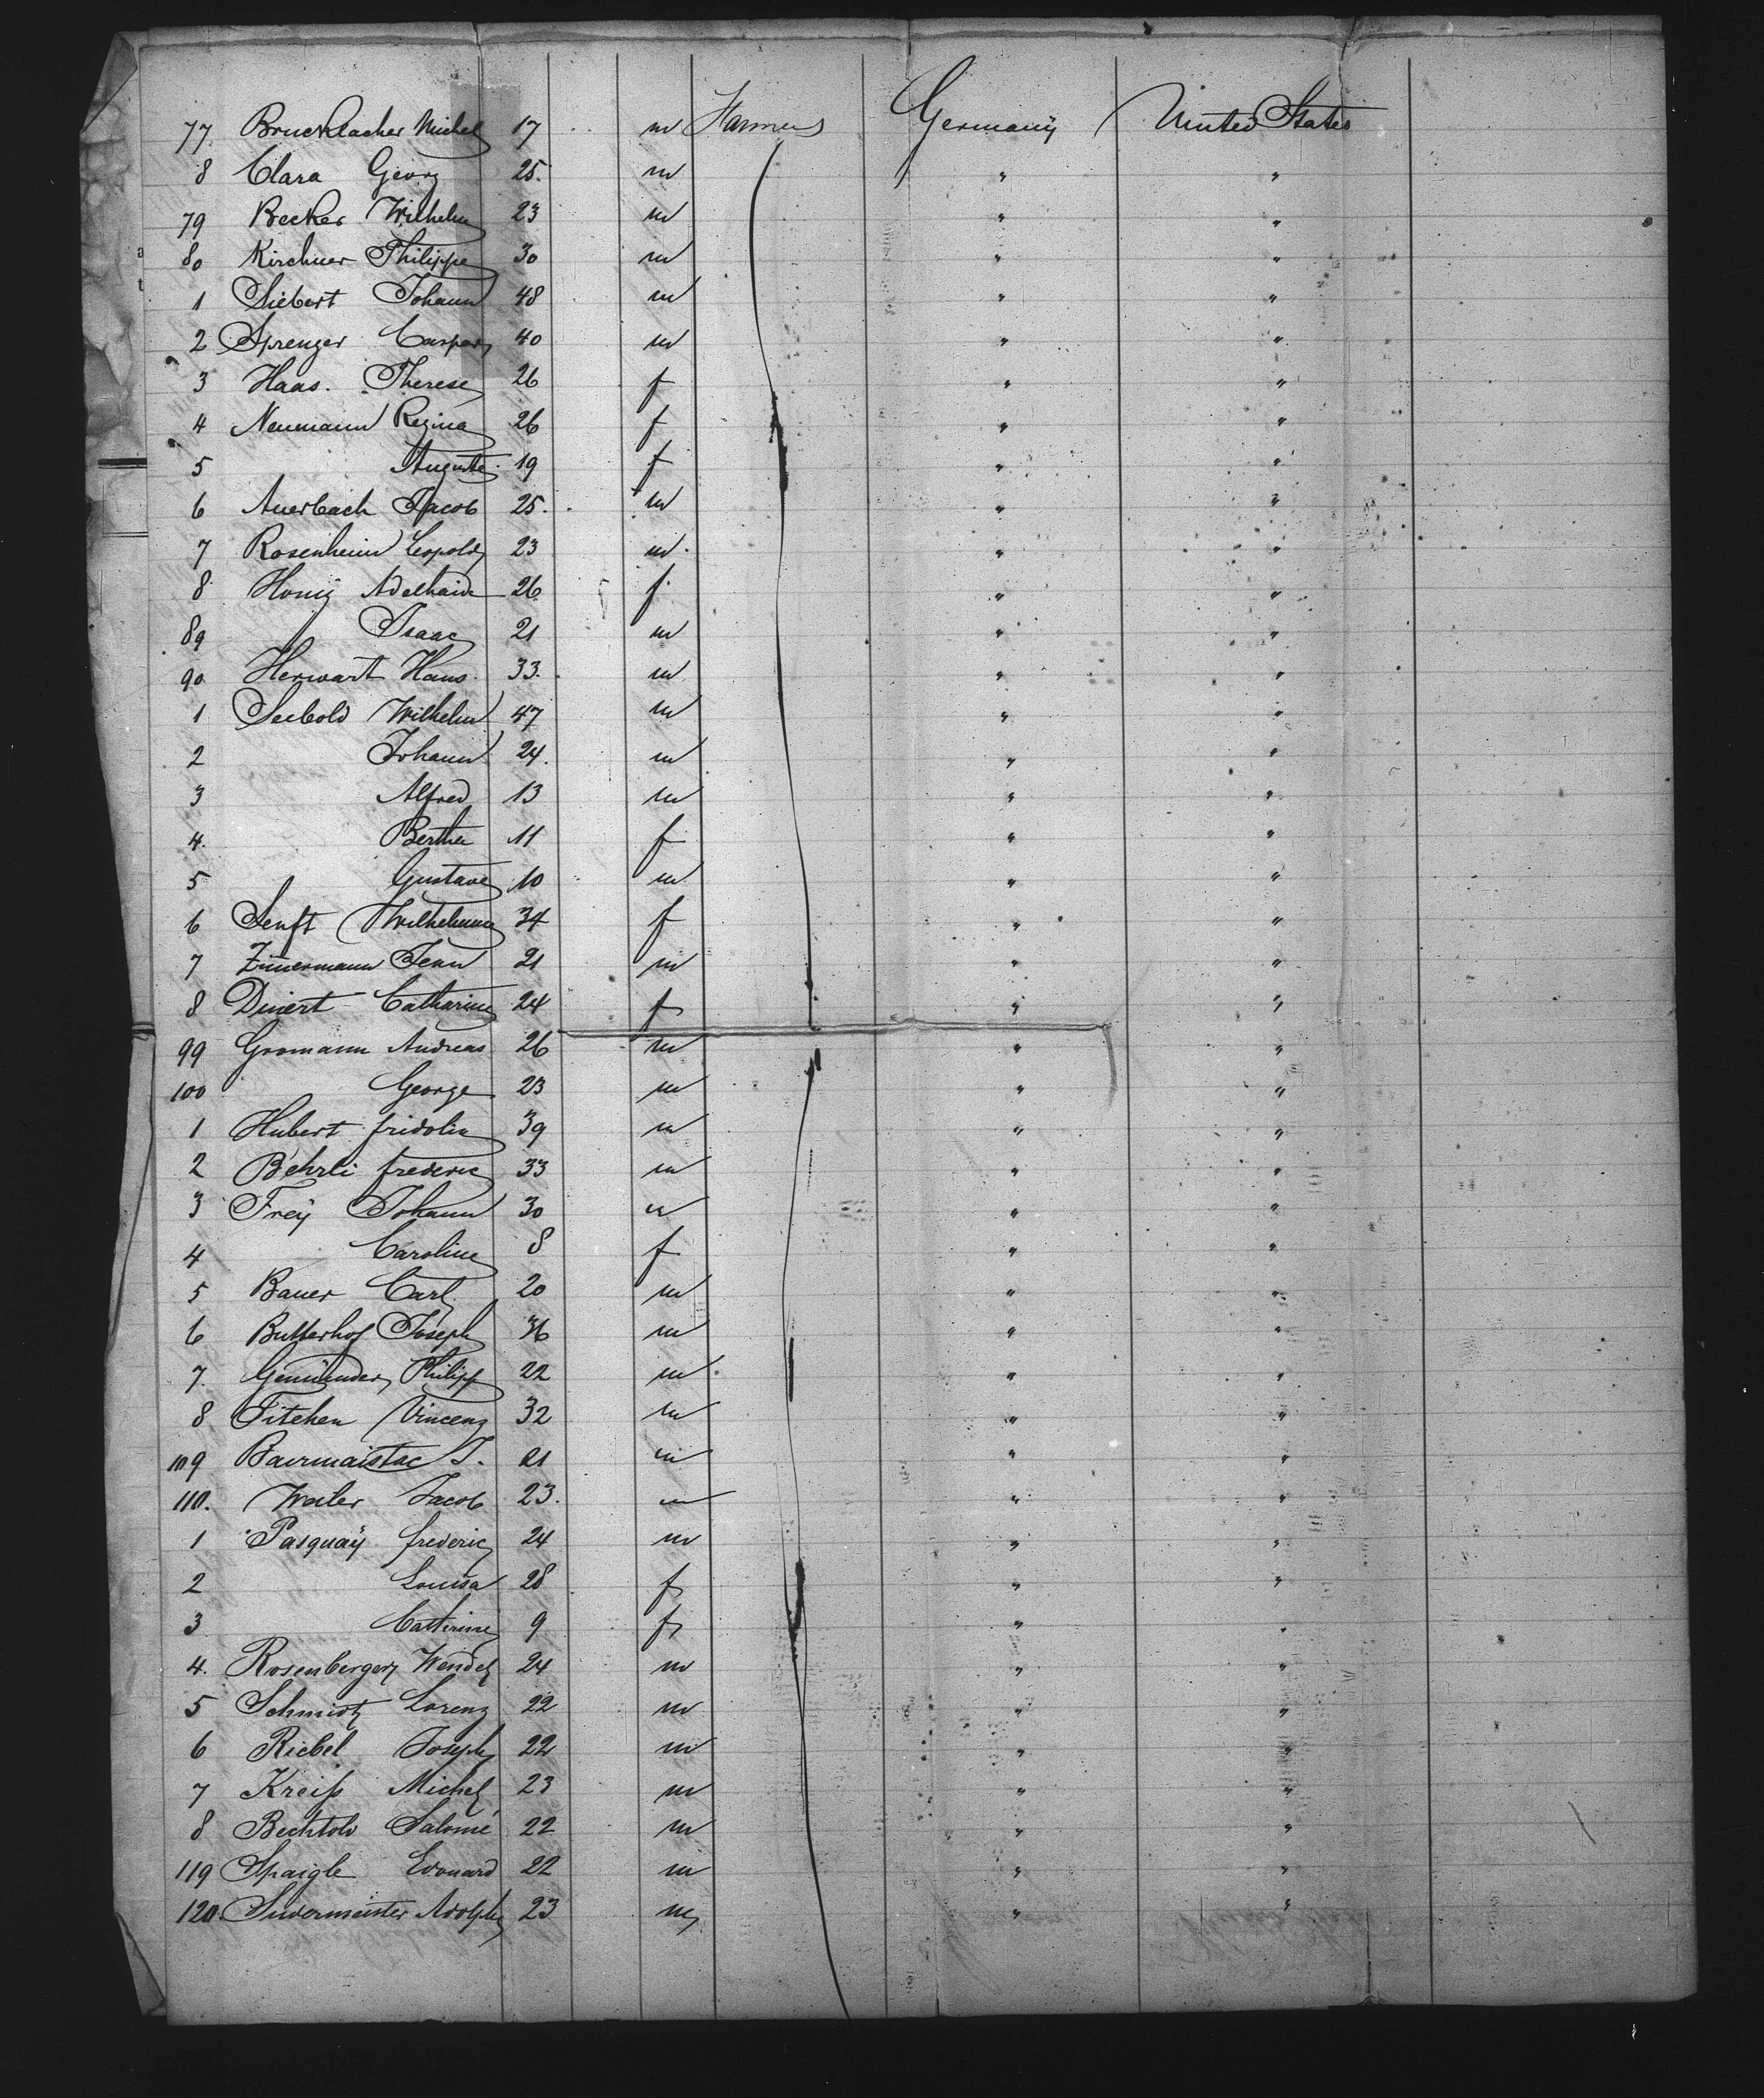 77. Brucklacher Michel 17 m Farmers Germany United States
8 Clara Georg 25. m " "
79 Becker Wilhelm 23 m " "
80 Kirchner Philippe 30 m " "
1 Siebert Johann 48 m " "
2 Sprenger Caspar 40 m " "
3 Haas. Therese 26 f " "
4 Neumann Regina 26 f " "
5 Auguste 19 f " "
6 Auerbach Jacob 25. m " "
7 Rosenheim Leopold 23 m " "
8 Honig Adelhaide 26 f " "
89 Isaac 21 m " "
90 Herwart Hans. 33. m " "
1 Seebold Wilhelm 47 m " "
2 Johann 24. m " "
3 Alfred 13 m " "
4. Bertha 11 f " "
5 Gustave 10 m " "
6 Senft Wilhelmine 34 f " "
7 Zimermann Jean 21 m " "
8 Dinert Catharine 24 f " "
99 Gromann Andreas 26 m " "
100 George 23 m " "
1 Hubert fridolin 39 m " "
2 Behrli frederic 33 m " "
3 Frey Johann 30 m " "
4 Caroline 8 f " "
5 Bauer Carl 20 m " "
6 Butterhof Joseph 36 m " "
7. Gemünder Philipp 22 m " "
8 Titchen Vincenz 32 m " "
109 J. 21 m " "
110. Weiler Jacob 23. m " "
1 Pasquay frederic 24 m " "
2 Louisa 28 f " "
3 Catherine 9 f " "
4. Rosenberger Wendel 24 m " "
5 Schmidt Lorenz 22 m " "
6 Riebel Joseph 22 m " "
7 Kreiß Michel 23 m " "
8 Bechtold Salomé 22 m " "
119 Spaigle Edouard 22 m " "
120. Sudermeister Adolphe 23 m " "